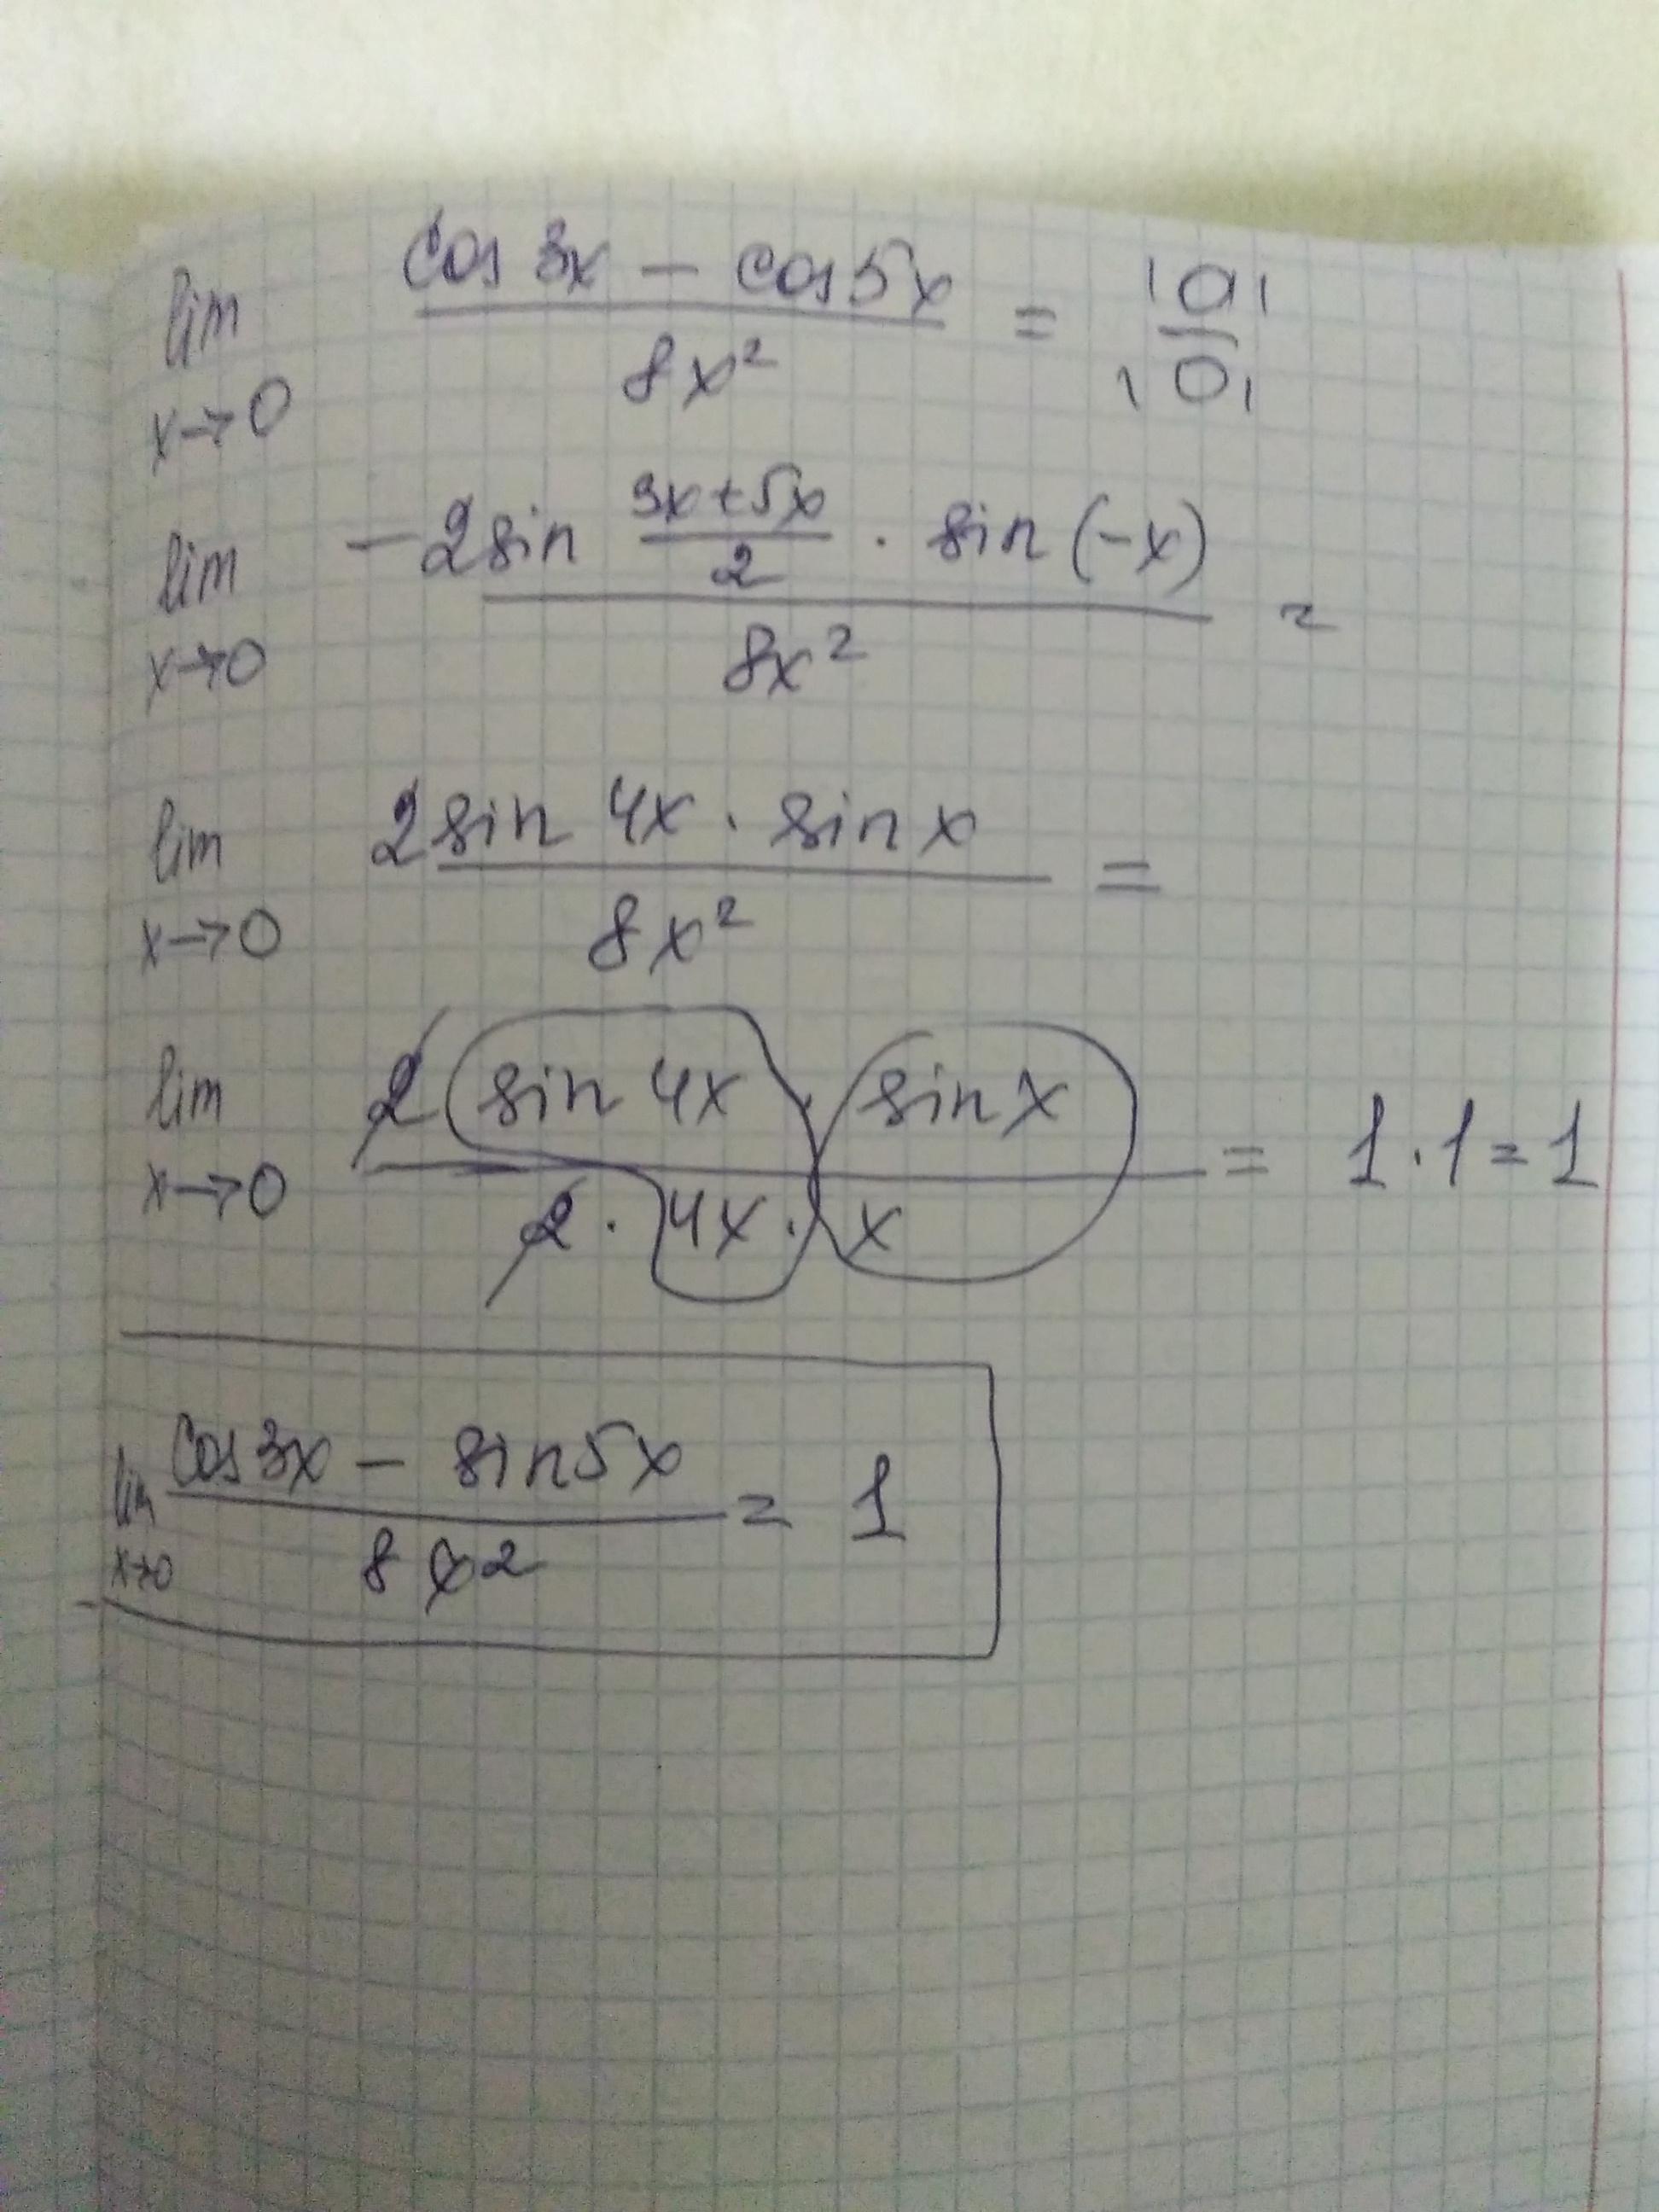 lim x→0 (cos 3x − cos 5x) / (8x²) = "0" / "0"
lim x→0 (−2 sin (3x+5x)/2 · sin (−x)) / (8x²) =
lim x→0 (2 sin 4x · sin x) / (8x²) =
lim x→0 (2 sin 4x · sin x) / (2 · 4x · x) = 1 · 1 = 1
lim x→0 (cos 3x − sin 5x) / (8x2) = 1